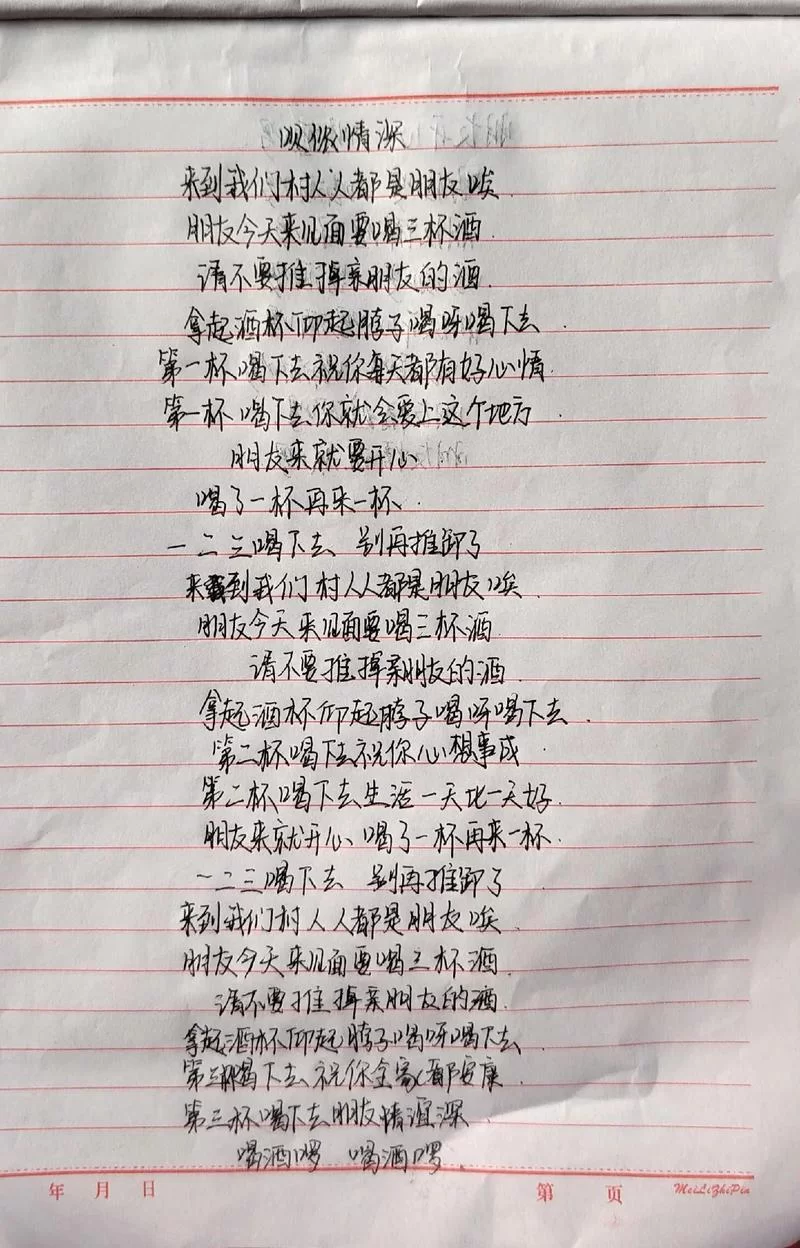 呗侬情深
来到我们村人人都是朋友唉.
朋友今天来见面要喝三杯酒.
请不要推掉亲朋友的酒.
拿起酒杯仰起脖子喝呀喝下去.
第一杯喝下去祝你每天都有好心情.
第一杯喝下去你就会爱上这个地方.
朋友来就要开心
喝了一杯再来一杯.
一二三喝下去 别再推卸了
来到我们村人人都是朋友唉.
朋友今天来见面要喝三杯酒.
请不要推掉亲朋友的酒.
拿起酒杯仰起脖子喝呀喝下去.
第二杯喝下去祝你心想事成.
第二杯喝下去生活一天比一天好.
朋友来就开心喝了一杯再来一杯.
一二三喝下去 别再推卸了
来到我们村人人都是朋友唉.
朋友今天来见面要喝三杯酒.
请不要推掉亲朋友的酒.
拿起酒杯仰起脖子喝呀喝下去.
第三杯喝下去祝你全家都安康.
第三杯喝下去朋友情谊深.
喝酒啰 喝酒啰.
年 月 日 第 页 MeiLiZhiPin